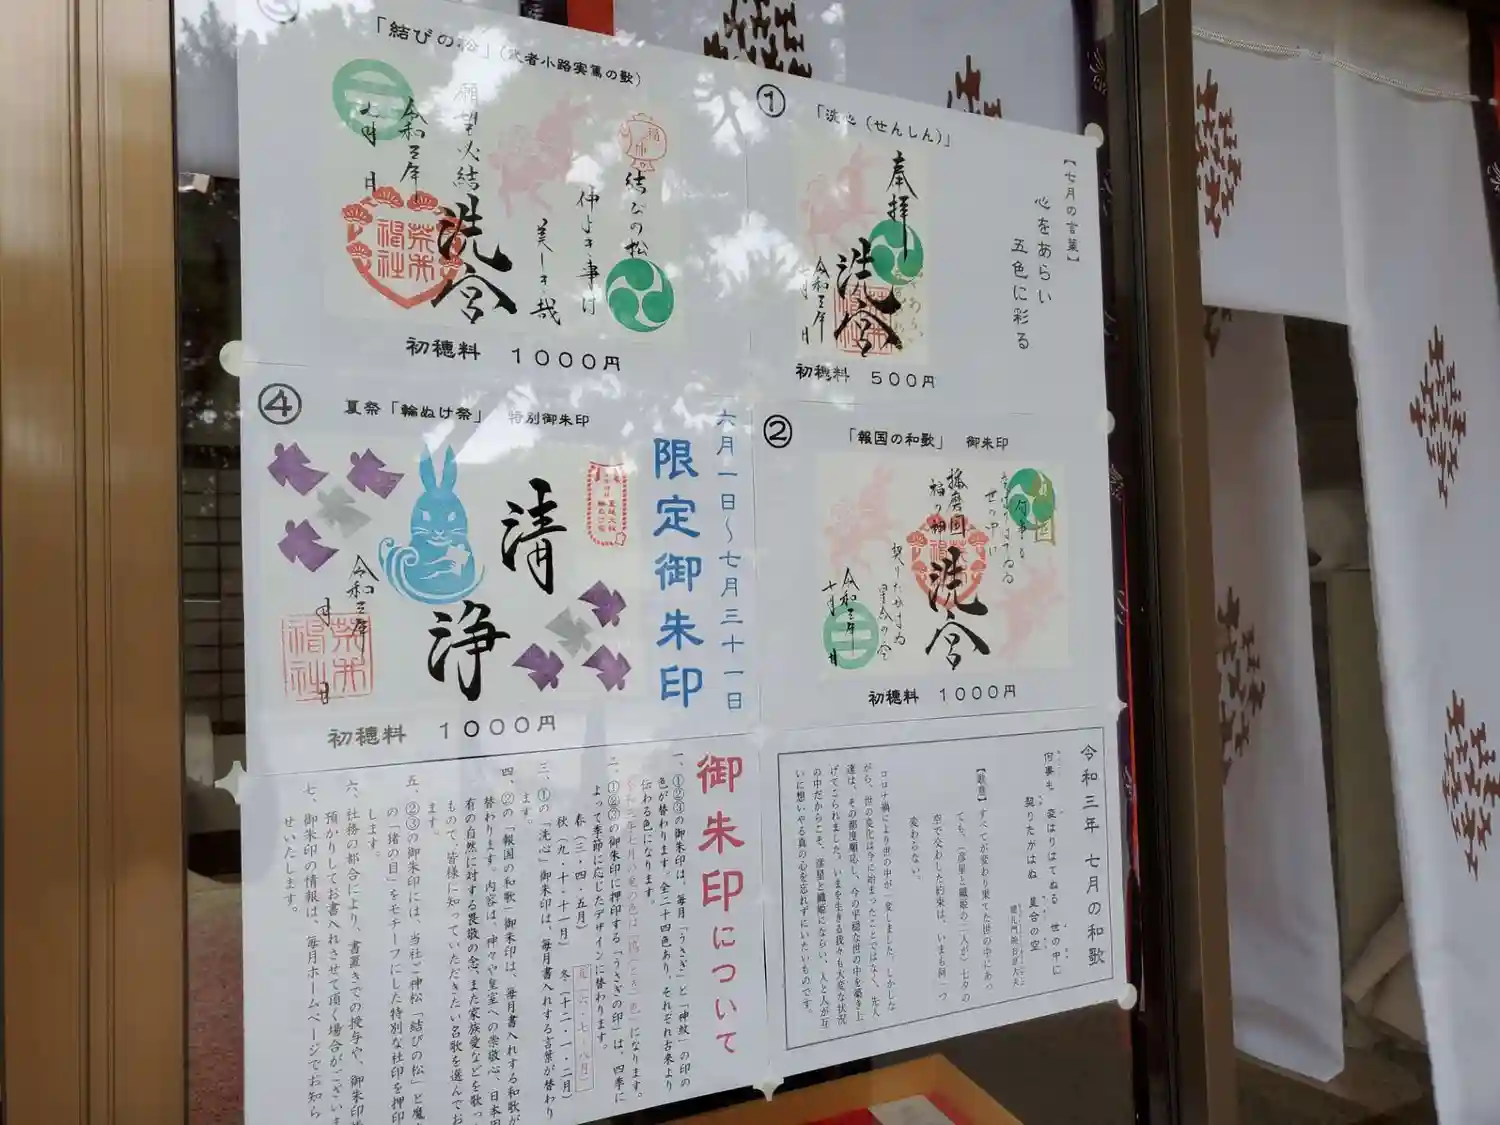 ①
「洗心（せんしん）」
【七月の言葉】
心をあらい
五色に彩る
奉拝
洗心
令和三年
七月　日
初穂料　５００円
②
「報国の和歌」　御朱印
播磨国
福の神
何事も
世の中に
契りたがはぬ
星合の空
洗心
令和三年
七月　日
初穂料　１０００円
③
「結びの松」（武者小路実篤の歌）
結びの松
仲よき事は
美しき哉
願望必結
洗心
令和三年
七月　日
初穂料　１０００円
④
夏祭「輪ぬけ祭」　特別御朱印
清
浄
令和三年
月　日
初穂料　１０００円
六月一日～七月三十一日
限定御朱印
令和三年　七月の和歌
何事も　変はりはてぬる　世の中に
契りたがはぬ　星合の空
【歌意】すべてが変わり果てた世の中にあっ
ても、（彦星と織姫の二人が）七夕の
空で交わした約束は、いまも何一つ
変わらない。
コロナ禍により世の中が一変しました。しかしな
がら、世の変化は今に始まったことではなく、先人
達は、その都度順応し、今の平穏な世の中を築き上
げてこられました。いまを生きる我々も大変な状況
の中だからこそ、彦星と織姫にならい、人と人が互
いに想いやる真の心を忘れずにいたいものです。
御朱印について
一、①②③の御朱印は、毎月「うさぎ」と「神紋」の印の
色が替わります。全二十四色あり、それぞれ古来より
伝わる色になります。
二、①②③の御朱印に押印する「うさぎの印」は、四季に
よって季節に応じたデザインに替わります。
春（三・四・五月）　夏（六・七・八月）
秋（九・十・十一月）　冬（十二・一・二月）
三、①の「洗心」御朱印は、毎月書入れする言葉が替わり
ます。
四、②の「報国の和歌」御朱印は、毎月書入れする和歌が
替わります。内容は、神々や皇室への崇敬心、日本固
有の自然に対する畏敬の念、また家族愛などを歌っ
もので、皆様に知っていただきたい名歌を選んでお
ます。
五、②③の御朱印には、当社ご神松「結びの松」と魔
の「猪の目」をモチーフにした特別な社印を押印
します。
六、社務の都合により、書置きでの授与や、御朱印
預かりしてお書入れさせて頂く場合がございま
七、御朱印の情報は、毎月ホームページでお知ら
せいたします。